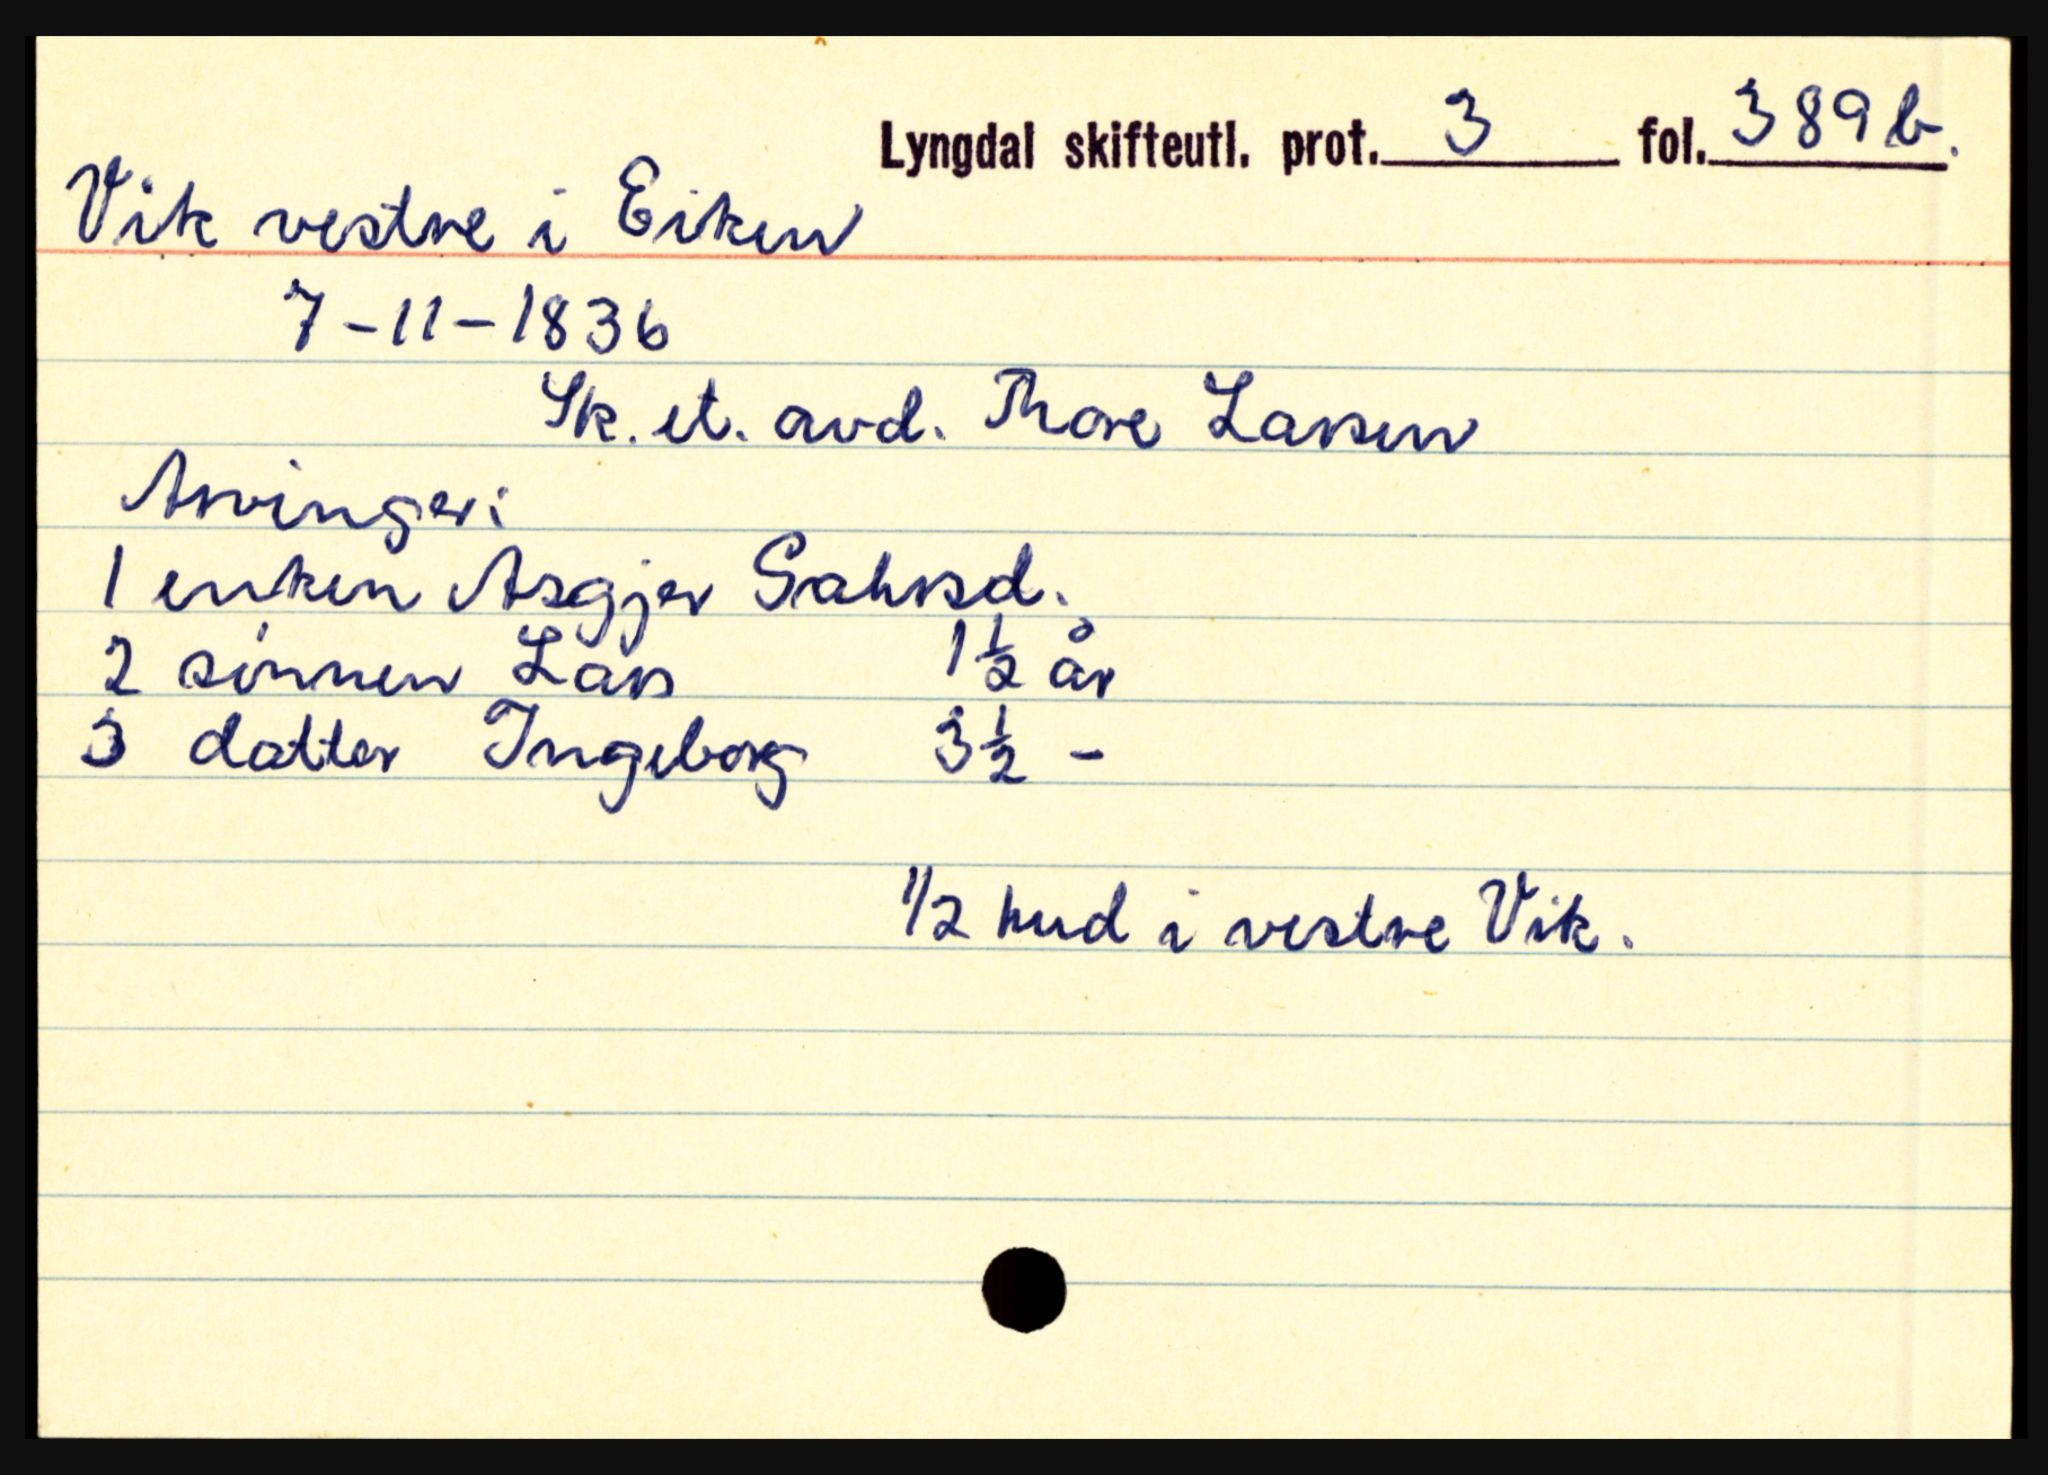 Lyngdal skifteutl. prot. 3 fol. 389b.
Vik vestre i Eiken
7-11-1836
Sk. et. avd. Thore Larsen
Arvinger:
1 enken Asgjer Sahrsd.
2 sønnen Lars 1 1/2 år
3 datter Ingeborg 3 1/2 -
1/2 hud i vestre Vik.